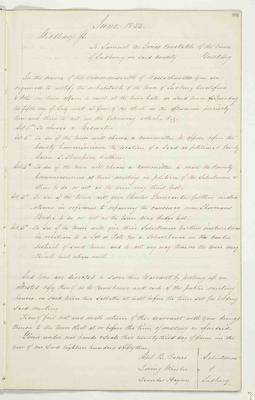 June 1853.
Middlesex ss.
To Samuel B. Jones Constable of the town
of Sudbury in said County Greeting
In the name of the Commonwealth of Massachusetts you are
required to notify the inhabitants of the town of Sudbury qualified
to Vote in town affairs to meet at the town hall in said town
the day of July next at five of the clock in the afternoon precisely
then and there to act on the following articles viz.
Art 1st To choose a Moderator
Art 2 To see if the town will choose a committee to appear before the
County Commissioners the location of a road as petitioned for by
and others
Art 3 To see if the town will choose a committee to meet the County
Commissioners at their meeting on petition of the Selectmen or
to do or act as the town may think best.
Art 4 To see if the town will give Charles further
in reference to repairing the causeway near
Bridge to do or act as the town may think best.
Art 5 To see if the town will give their Selectmen further instructions
in relation to a lot for a Schoolhouse in the
district of said town and to act any way thereon the town may
think best when met.
And you are directed to serve this Warrant by posting up an
attested copy thereof at the town house and each of the public meeting
houses in said town two Sabbaths at least before the time set for holding
said meeting
Hereof fail not and make return of this warrant with your doings
thereon to the town Clerk at or before the time of meeting as aforesaid.
Given under our hands & Seals this twenty third day of June in the
year of our Lord eighteen hundred & fifty three.
B. Jones Selectmen
Wheeler of
Haynes Sudbury